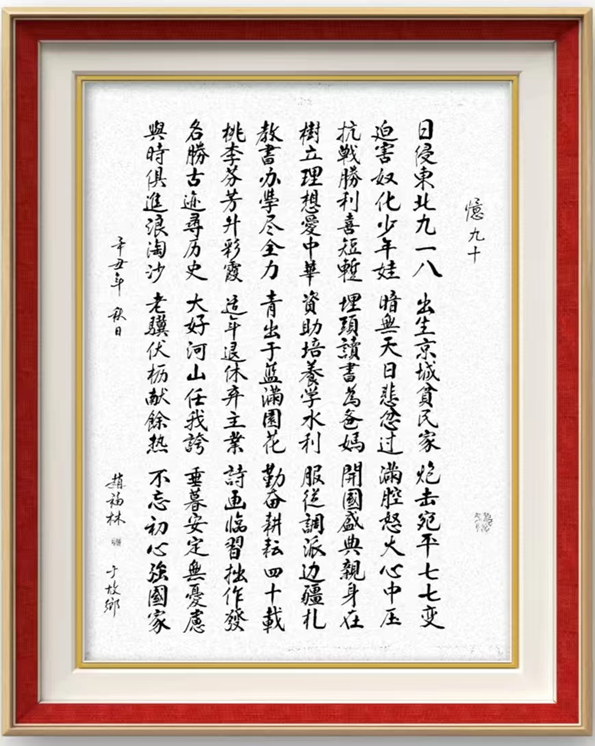 憶九十
日侵東北九一八 出生京城貧民家 炮击宛平七七变
迫害奴化少年娃 暗無天日悲忿过 滿腔怒火心中压
抗戰勝利喜短暫 埋頭讀書為爸媽 開國盛典親身在
樹立理想愛中華 資助培養學水利 服従調派边疆扎
教書办學尽全力 青出于藍滿園花 勤奋耕耘四十載
桃李芬芳升彩霞 年退休弃主業 詩画临習拙作發
名勝古迹尋历史 大好河山任我誇 垂暮安定無憂慮
與時俱進浪淘沙 老驥伏枥献餘热 不忘初心強國家
辛丑年 秋日 趙福林 于故鄉